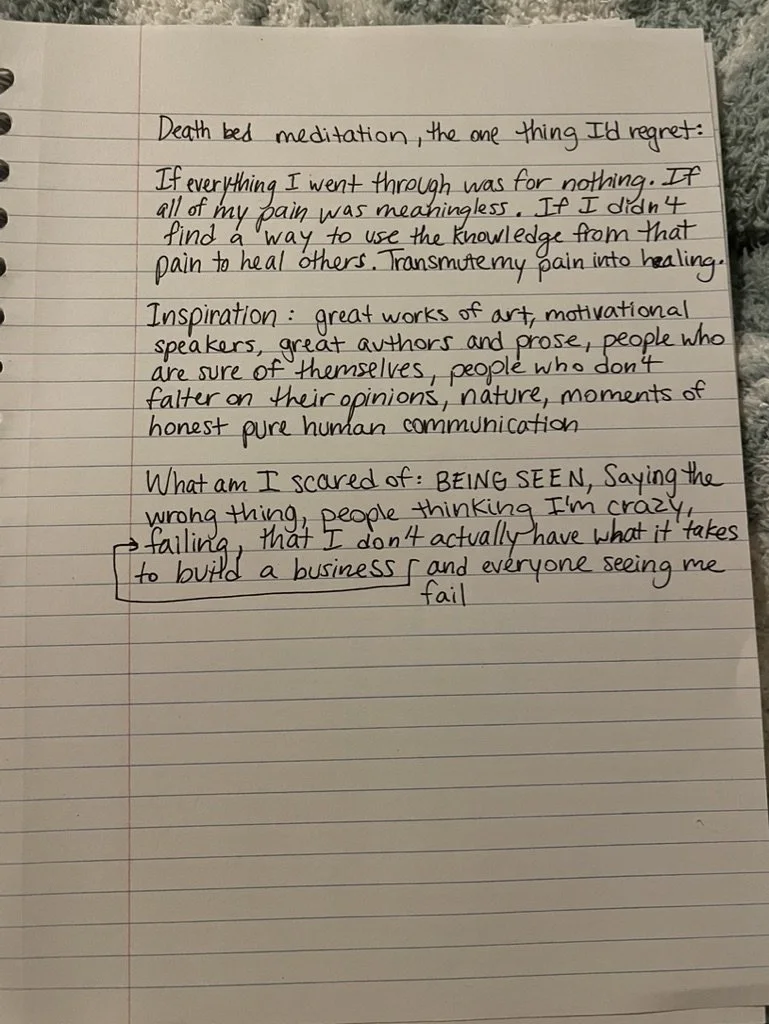 Death bed meditation, the one thing I'd regret:
If everything I went through was for nothing. If
all of my pain was meaningless. If I didn't
find a way to use the knowledge from that
pain to heal others. Transmute my pain into healing.
Inspiration: great works of art, motivational
speakers, great authors and prose, people who
are sure of themselves, people who don't
falter on their opinions, nature, moments of
honest pure human communication
What am I scared of: BEING SEEN, Saying the
wrong thing, people thinking I'm crazy,
failing, that I don't actually have what it takes
to build a business and everyone seeing me
fail